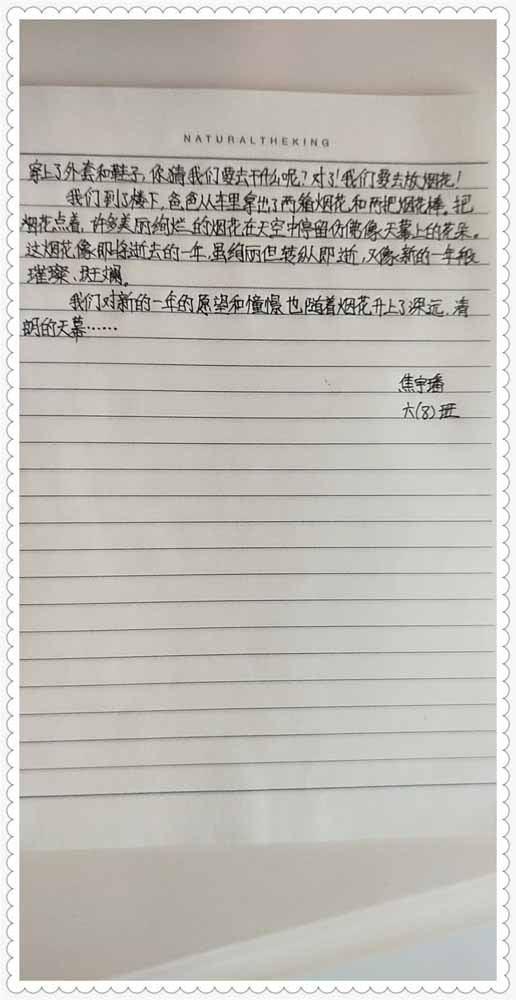 NATURALTHEKING
穿上了外套和鞋子,你猜我们要去干什么呢?对了!我们要去放烟花!
我们到了楼下,爸爸从车里拿出了两箱烟花和两把烟花棒。把
烟花点着,许多美丽绚烂的烟花在天空中停留仿佛像天幕上的花朵。
这烟花像即将逝去的一年,虽绚丽但转纵即逝,又像新的一年般
璀璨、斑斓。
我们对新的一年的愿望和憧憬也随着烟花升上了深远、清
明的天幕……
焦宇璠
六(8)班